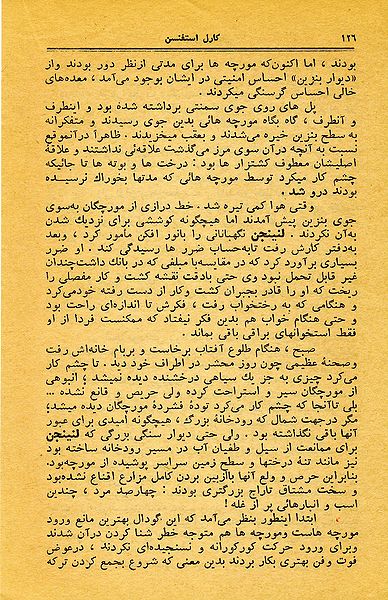 ۱۲۶ کارل استفنسن
بودند ، اما اکنون‌که مورچه ها برای مدتی ازنظر دور بودند واز
«دیوار بنزین» احساس امنیتی در ایشان بوجود می‌آمد ، معده‌های
خالی احساس گرسنگی میکردند .
پل های روی جوی سمنتی برداشته شده بود و اینطرف
و آنطرف ، گاه بگاه مورچه هائی بدین جوی رسیدند و متفکرانه
به سطح بنزین خیره می‌شدند و بعقب میخزیدند . ظاهراً درآنموقع
نسبت به آنچه درآن سوی مرز می‌گذشت علاقه‌ئی نداشتند و علاقهٔ
اصلیشان معطوف کشتزار ها بود : درخت ها و بوته ها تا جائیکه
چشم کار میکرد توسط مورچه هائی که مدتها بخوراك نرسیده
بودند درو شد .
وقتی هوا کمی تیره شد . خط درازی از مورچگان به‌سوی
جوی بنزین پیش آمدند اما هیچگونه کوششی برای نزدیك شدن
به‌آن نکردند . لنینجن نگهبانانی را بانور افکن مأمور کرد ، وبعد
به‌دفتر کارش رفت تابه‌حساب ضرر ها رسیدگی کند . او ضرر
بسیاری برآورد کرد که در مقایسه‌با مبلغی که در بانك داشت‌چندان
غیر قابل تحمل نبود وی حتی بادقت نقشه کشت و کار مفصلی را
ریخت که او را قادر بجبران کشت وکار از دست رفته خودمی‌کرد
و هنگامی که به رختخواب رفت ، فکرش تا اندازه‌ای راحت بود
و حتی هنگام خواب هم بدین فکر نیفتاد که ممکنست فردا از او
فقط استخوانهای براقی باقی بماند .
صبح ، هنگام طلوع آفتاب برخاست و بربام خانه‌اش رفت
وصحنهٔ عظیمی چون روز محشر در اطراف خود دید . تا چشم کار
می‌کرد چیزی به جز یك سیاهی درخشنده دیده نمیشد ؛ انبوهی
از مورچگان سیر و استراحت کرده ولی حریص و قانع نشده ...
بلی تاآنجا که چشم کار می‌کرد تودهٔ فشردهٔ مورچگان دیده میشد؛
مگر درجهت شمال که رودخانهٔ بزرگ ، هیچگونه امیدی برای عبور
آنها باقی نگذاشته بود . ولی حتی دیوار سنگی بزرگی که لنینجن
برای ممانعت از سیل و طغیان آب در مسیر رودخانه ساخته بود
نیز مانند تنهٔ درختها و سطح زمین سراسر پوشیده از مورچه‌بود.
بنابراین حرص و ولع آنها باازبین بردن کامل مزارع اقناع نشده‌بود
و سخت مشتاق تاراج بزرگتری بودند : چهارصد مرد ، چندین
اسب و انبارهائی پر از غله !
ابتدا اینطور بنظر می‌آمد که این گودال بهترین مانع ورود
مورچه هاست ومورچه ها هم متوجه خطر شنا کردن درآن شدند
وبرای ورود حرکت کورکورانه و نسنجیده‌ای نکردند ، درعوض
قوت وفن بهتری بکار بردند بدین معنی که شروع بجمع کردن ترکه